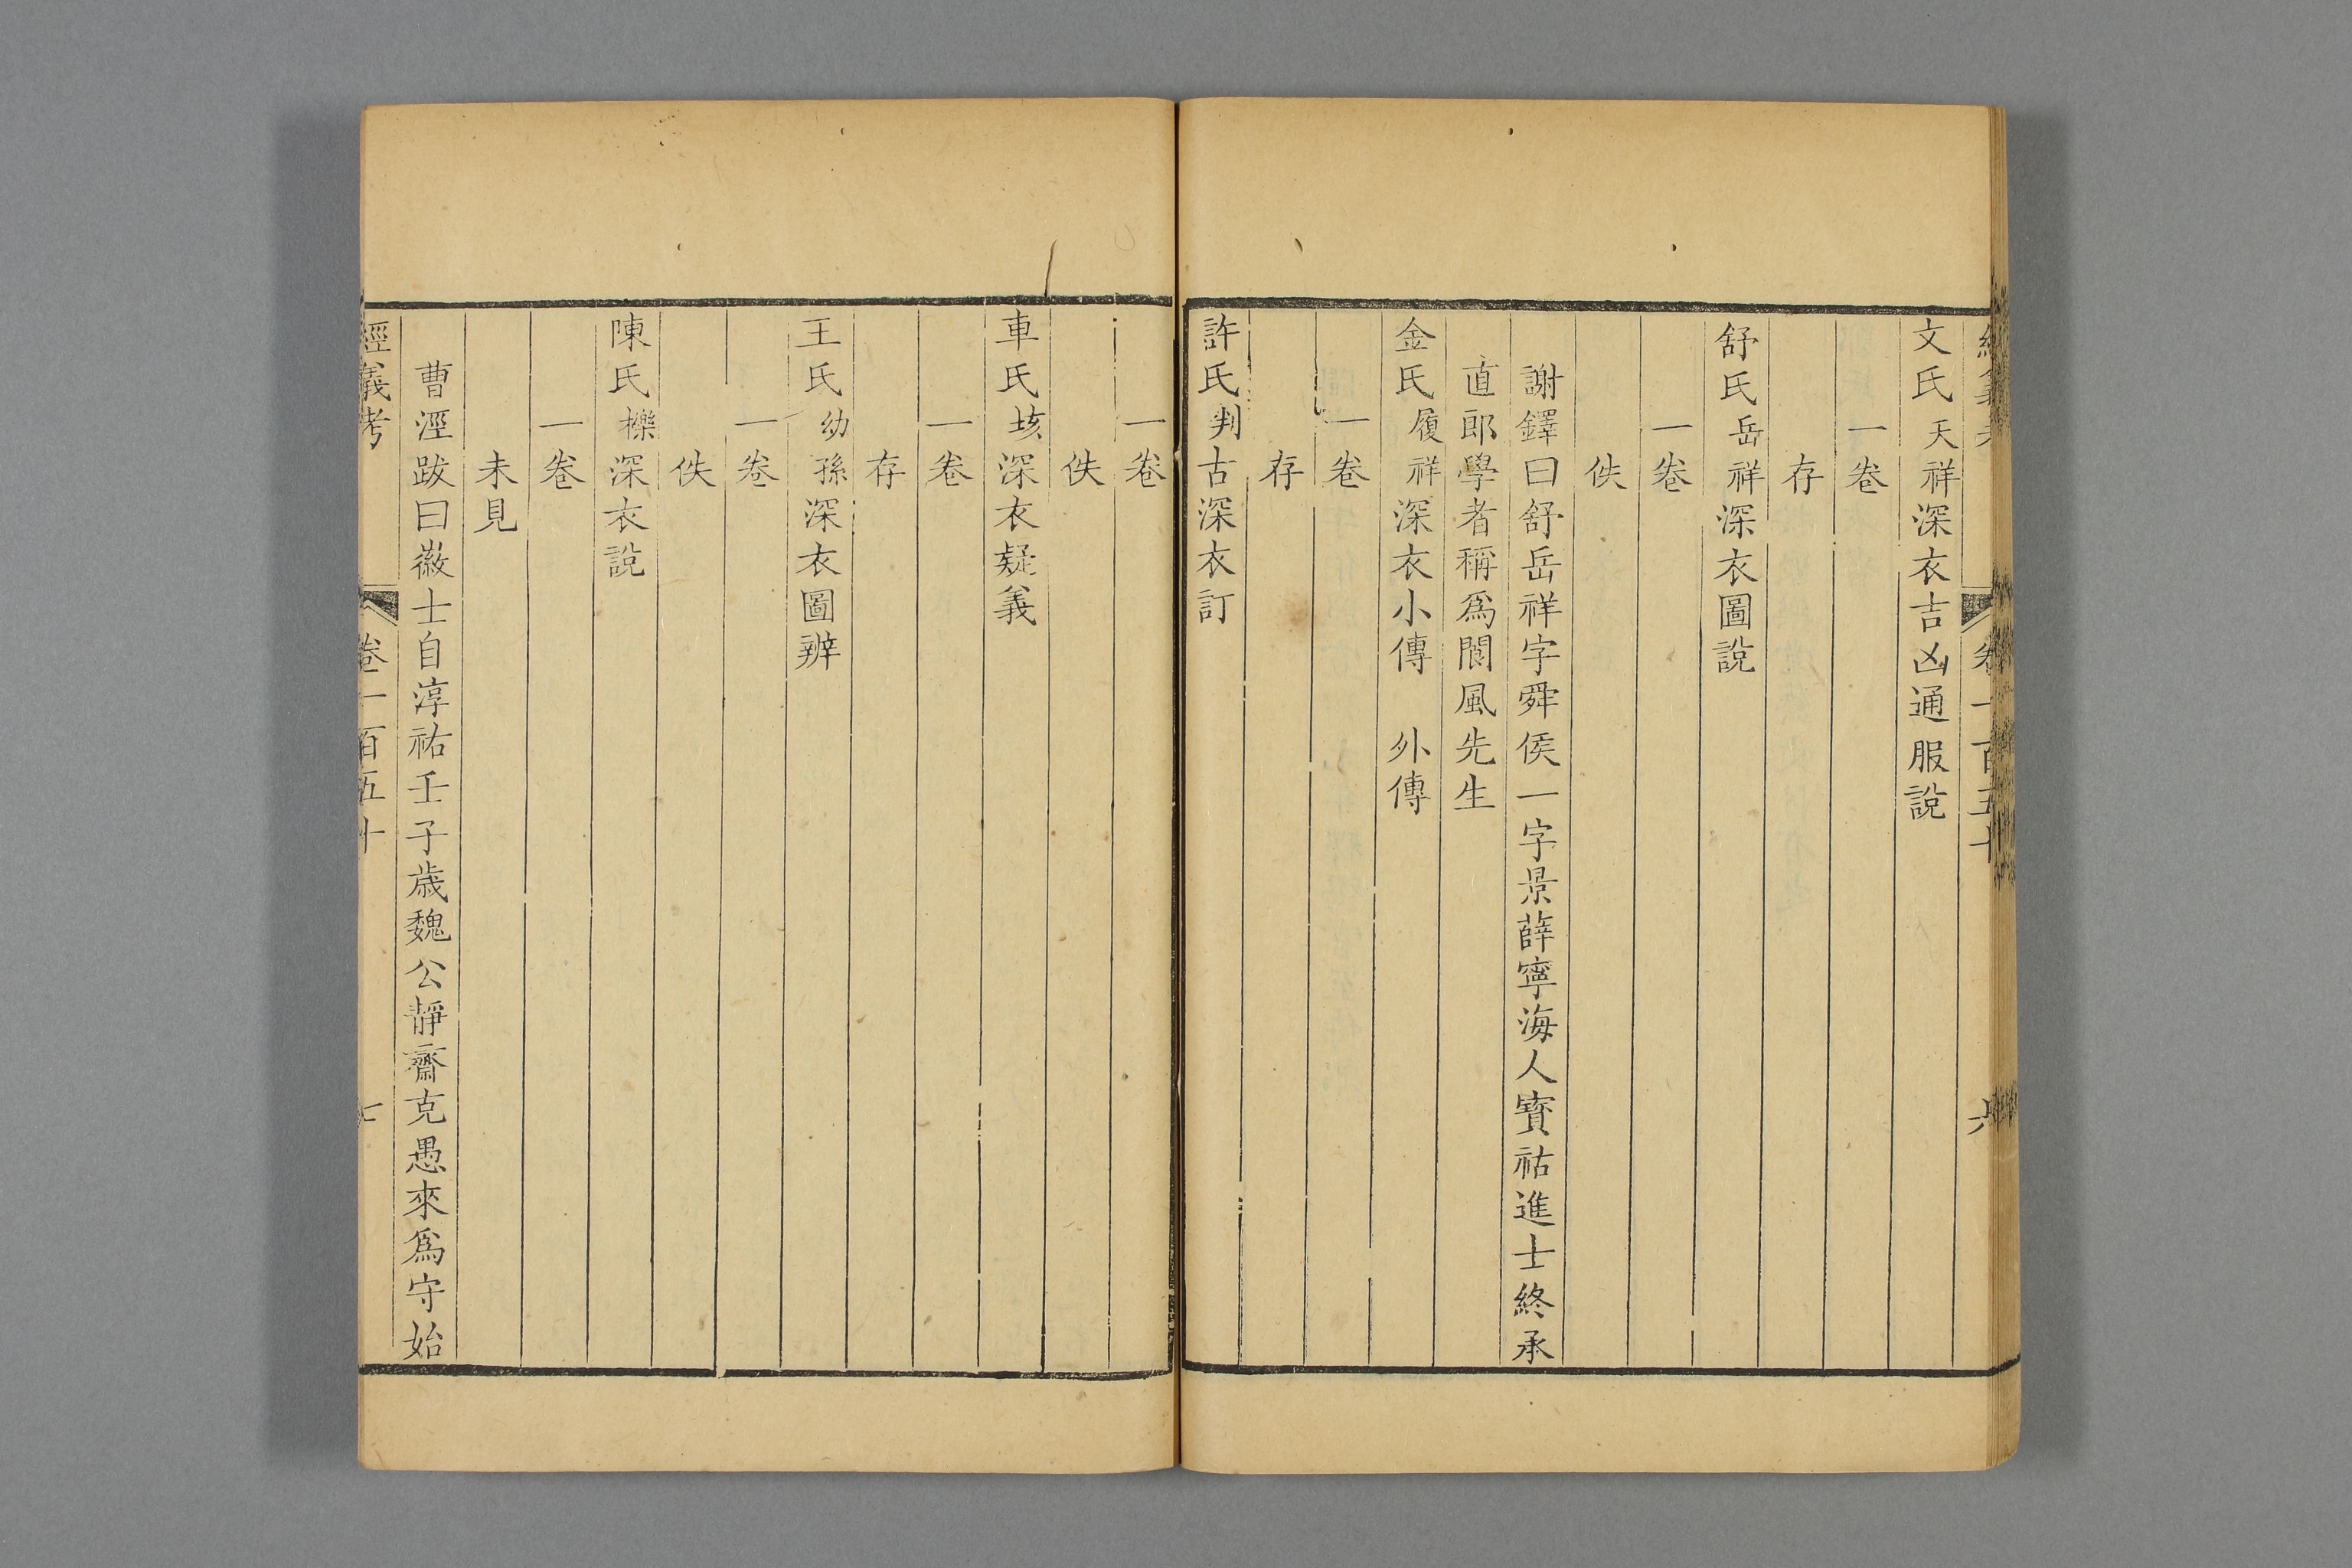 文氏天祥深衣吉凶通服說
一卷
存
舒氏岳祥深衣圖說
一卷
佚
謝鐸曰舒岳祥字舜侯一字景薛寧海人寳祐進士終承
直郎學者稱爲閬風先生
金氏履祥深衣小傳　外傳
一卷
存
許氏判古深衣訂
一卷
佚
車氏垓深衣疑義
一卷
存
王氏幼孫深衣圖辨
一卷
佚
陳氏櫟深衣說
一卷
未見
曹涇跋曰徽士自淳祐壬子歲魏公靜齋克愚來爲守始
經義考　卷一百五十　七